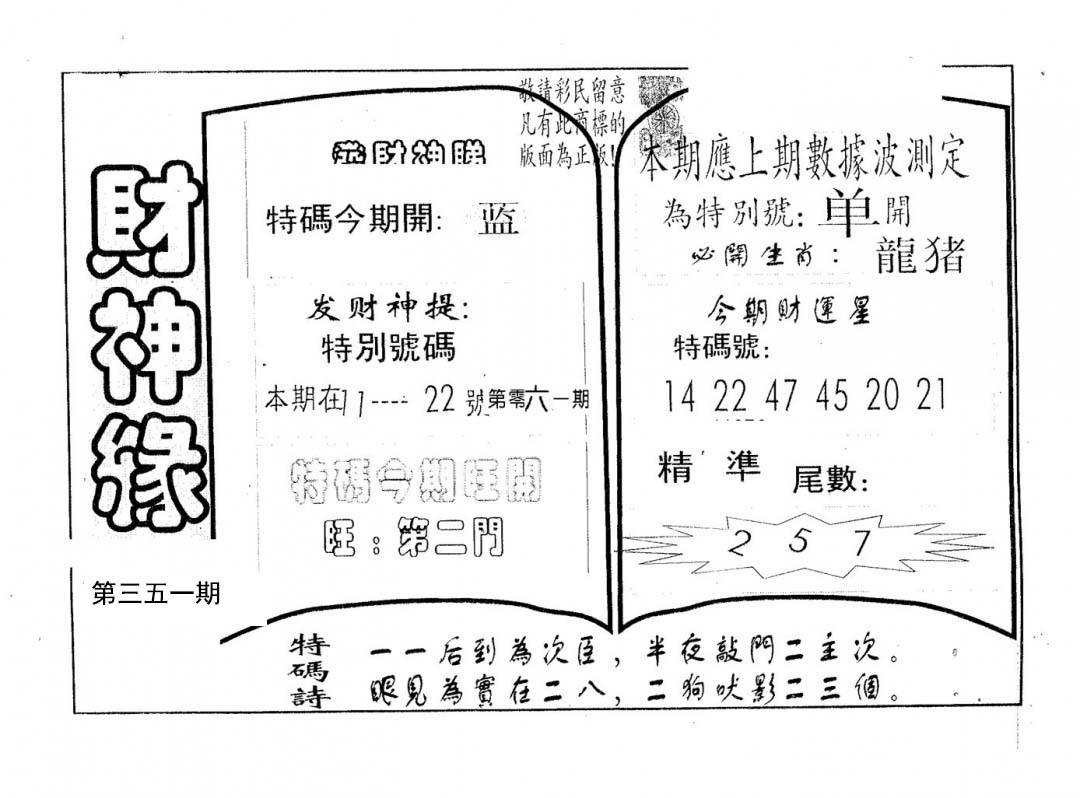 財神緣
第三五一期
敬請彩民留意
凡有此商標的
版面為正版!
財神
特碼今期開: 蓝
发财神提:
特別號碼
本期在11---- 22號第零六一期
特碼今期旺開
旺:第二門
本期應上期數據波測定
為特別號: 单開
必開生肖: 龍猪
今期財運星
特碼號:
14 22 47 45 20 21
精 準 尾數:
2 5 7
特碼詩
一一后到為次臣,半夜敲門二主次。
眼見為實在二八,二狗吠影二三個。